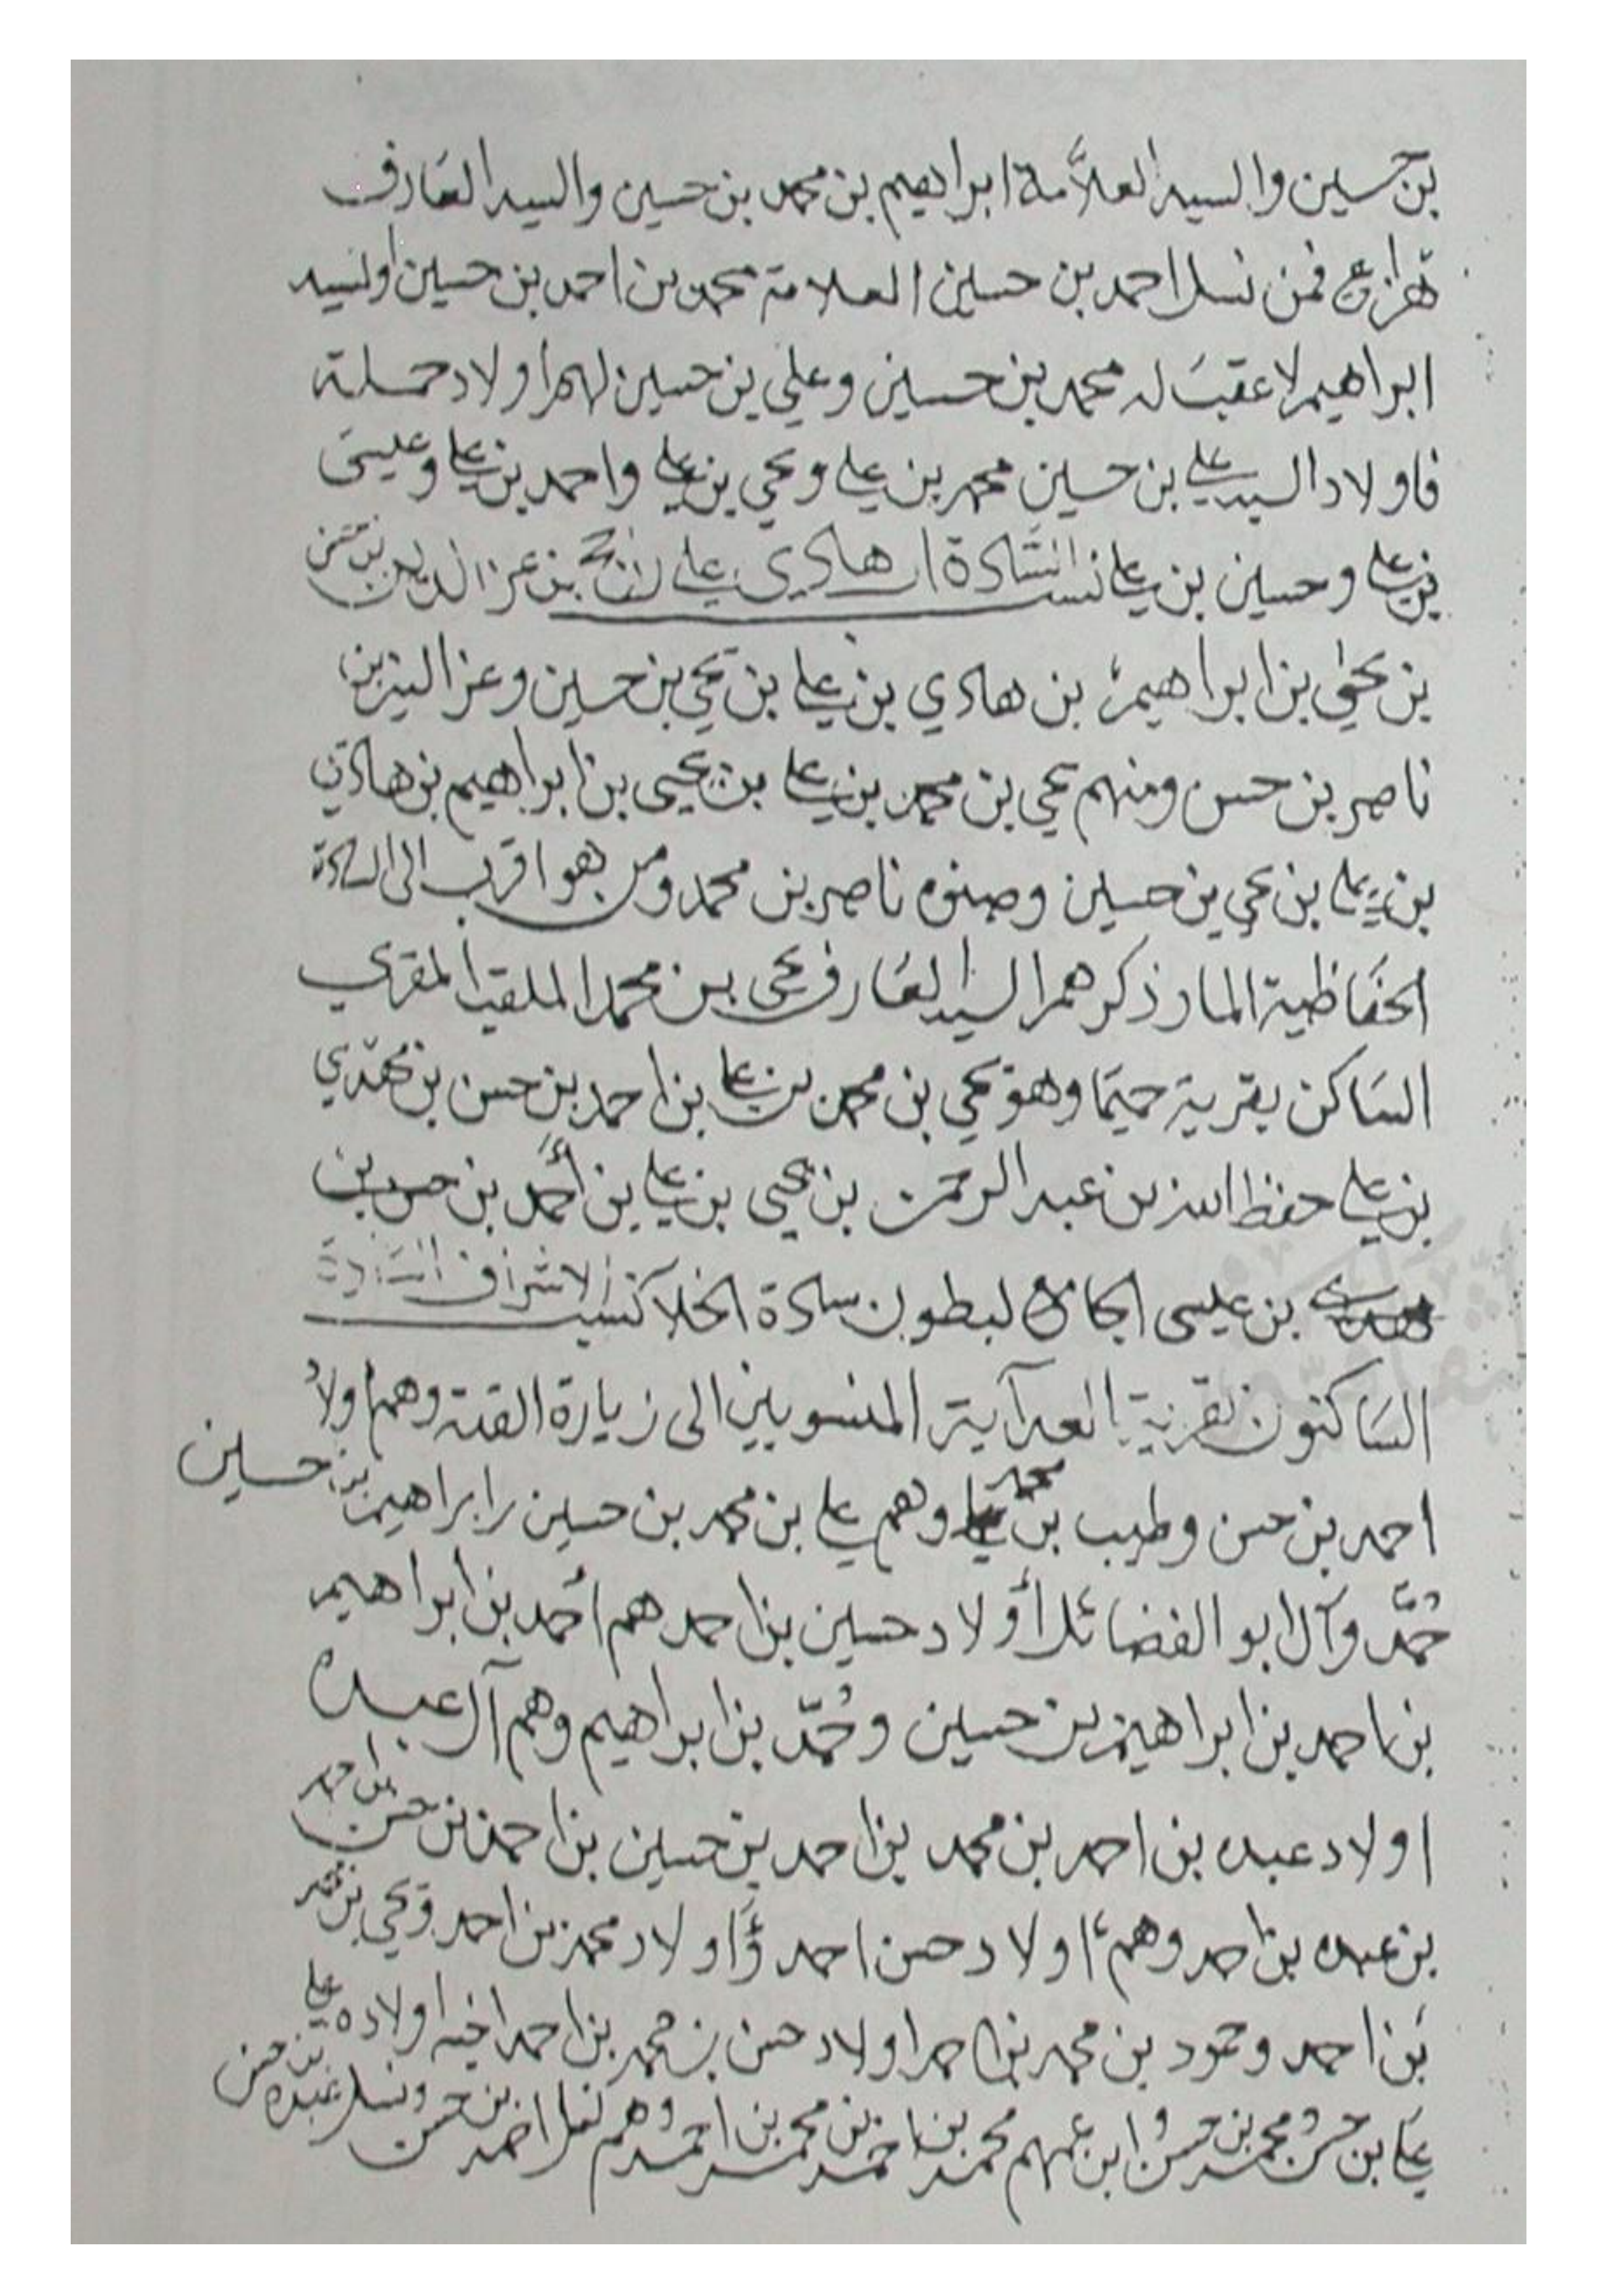 بن حسين والسيد العلامة ابراهيم بن محمد بن حسين والسيد العارف
فمن نسل احمد بن حسين العلامة محمد بن احمد بن حسين والسيد
ابراهيم لا عقب له محمد بن حسين وعلي بن حسين لهم اولاد جملة
فاولاد السيد علي بن حسين محمد بن علي ويحي بن علي واحمد بن علي وعيسى
بن علي وحسين بن علي نسب السادة هادي علي بن عز الدين بن حسن
بن يحيى بن ابراهيم بن هادي بن علي بن يحي بن حسين وعز الدين بن
ناصر بن حسن ومنهم يحي بن محمد بن علي بن يحيى بن ابراهيم بن هادي
بن علي بن يحي بن حسين وصنوه ناصر بن محمد ومن هو اقرب الى السادة
الحفاظية المار ذكرهم السيد العارف يحي بن محمد الملقب المقري
الساكن بقرية وهو يحي بن محمد بن علي بن احمد بن حسن بن مهدي
بن علي حفظ الله بن عبد الرحمن بن يحيى بن علي بن أحمد بن حسن بن
بن عيسى الجامع لبطون سادة نسب الاشراف السادة
الساكنون بقرية المنسوبين الى زيارة القبة وهم اولاد
احمد بن حسن وطيب بن محمد وهم علي بن محمد بن حسين ابراهيم بن حسين
حُمّد وآل ابو الفضائل أولاد حسين بن احمد هم أحمد بن ابراهيم
بن احمد بن ابراهيم بن حسين وحُمّد بن ابراهيم وهم آل عبده
اولاد عبده بن احمد بن محمد بن احمد بن حسين بن احمد بن حسن بن احمد
بن عبده بن احمد وهم اولاد حسن احمد واولاد محمد بن احمد ويحي بن محمد
بن احمد وحمود بن محمد بن احمد اولاد حسن بن محمد بن احمد اخيه اولاده علي
علي بن حسن ومحمد بن حسن وابن عمهم محمد بن احمد بن محمد بن احمد وهم نسل احمد بن حسن ونسل عبده بن حسن